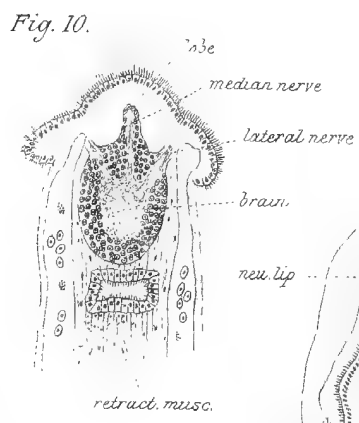 Fig. 10.
median nerve
lateral nerve
brain
neu. lip
retract. musc.